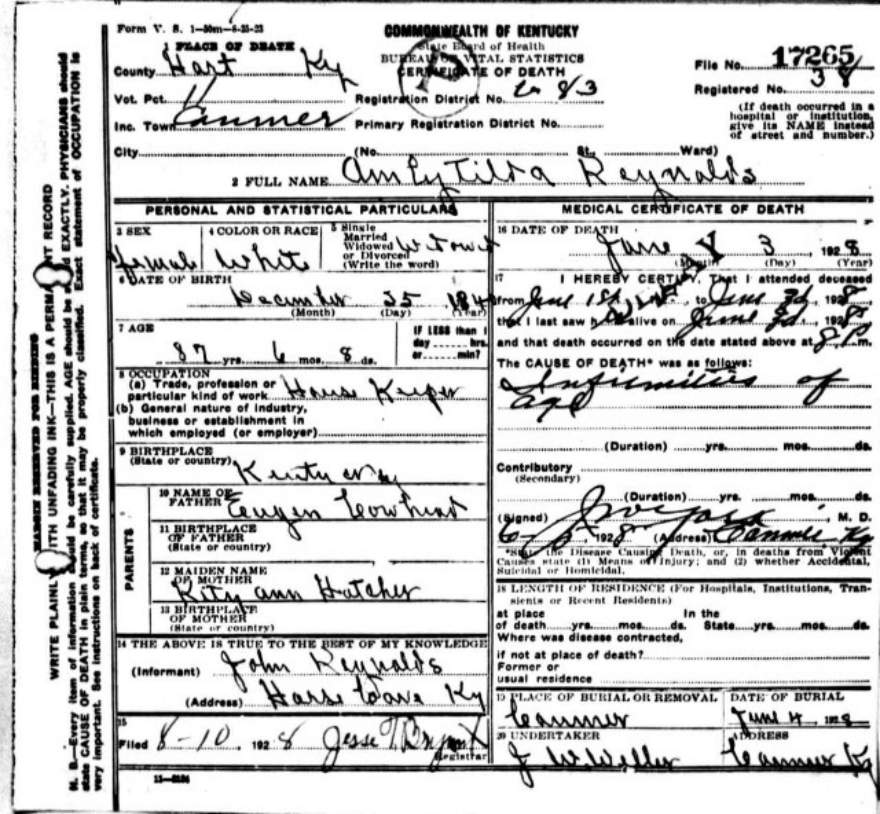 Form V. S. 1—50m—6-25-23
COMMONWEALTH OF KENTUCKY
State Board of Health
BUREAU OF VITAL STATISTICS
CERTIFICATE OF DEATH
File No. 17265
Registered No. 38
(If death occurred in a hospital or institution, give its NAME instead of street and number.)
1 PLACE OF DEATH
County Hart Ky
Vot. Pct. 11
Registration District No. 683
Inc. Town Canmer
Primary Registration District No.
City (No. St., Ward)
2 FULL NAME Reynolds
PERSONAL AND STATISTICAL PARTICULARS
3 SEX
female
4 COLOR OR RACE
White
5 Single Married Widowed or Divorced (Write the word)
6 DATE OF BIRTH
December 25 184
(Month) (Day) (Year)
7 AGE
87 yrs. 6 mos. 8 ds.
IF LESS than 1 day hrs. or min?
8 OCCUPATION
(a) Trade, profession or particular kind of work House Keeper
(b) General nature of industry, business or establishment in which employed (or employer)
9 BIRTHPLACE
(State or country)
PARENTS
10 NAME OF FATHER
Eugen Cowherd
11 BIRTHPLACE OF FATHER
(State or country)
12 MAIDEN NAME OF MOTHER
Kity ann Hatcher
13 BIRTHPLACE OF MOTHER
(State or country)
14 THE ABOVE IS TRUE TO THE BEST OF MY KNOWLEDGE
(Informant) John Reynolds
(Address) Horse Cave Ky
15
Filed 8-10, 1928 Jesse T.
Registrar
11—3184
MEDICAL CERTIFICATE OF DEATH
16 DATE OF DEATH
June 3 1928
(Month) (Day) (Year)
17 I HEREBY CERTIFY, That I attended deceased
from June 1st to June 3d, 1928
that I last saw h alive on June 3d, 1928
and that death occurred on the date stated above at 8 P.m.
The CAUSE OF DEATH* was as follows:
Infirmities of
age
(Duration) yrs. mos. ds.
Contributory
(Secondary)
(Duration) yrs. mos. ds.
(Signed) , M. D.
6-5, 1928 (Address) Canmer Ky
*State the Disease Causing Death, or, in deaths from Violent
Causes state (1) Means of Injury; and (2) whether Accidental,
Suicidal or Homicidal.
18 LENGTH OF RESIDENCE (For Hospitals, Institutions, Tran-
sients or Recent Residents)
at place of death yrs. mos. ds. In the State yrs. mos. ds.
Where was disease contracted,
if not at place of death?
Former or
usual residence
19 PLACE OF BURIAL OR REMOVAL
Canmer
DATE OF BURIAL
June 4, 1928
20 UNDERTAKER
J W Weller
ADDRESS
Canmer Ky
MARGIN RESERVED FOR BINDING
WRITE PLAINLY WITH UNFADING INK—THIS IS A PERMANENT RECORD
N. B.—Every item of information should be carefully supplied. AGE should be stated EXACTLY. PHYSICIANS should
state CAUSE OF DEATH in plain terms, so that it may be properly classified. Exact statement of OCCUPATION is
very important. See instructions on back of certificate.